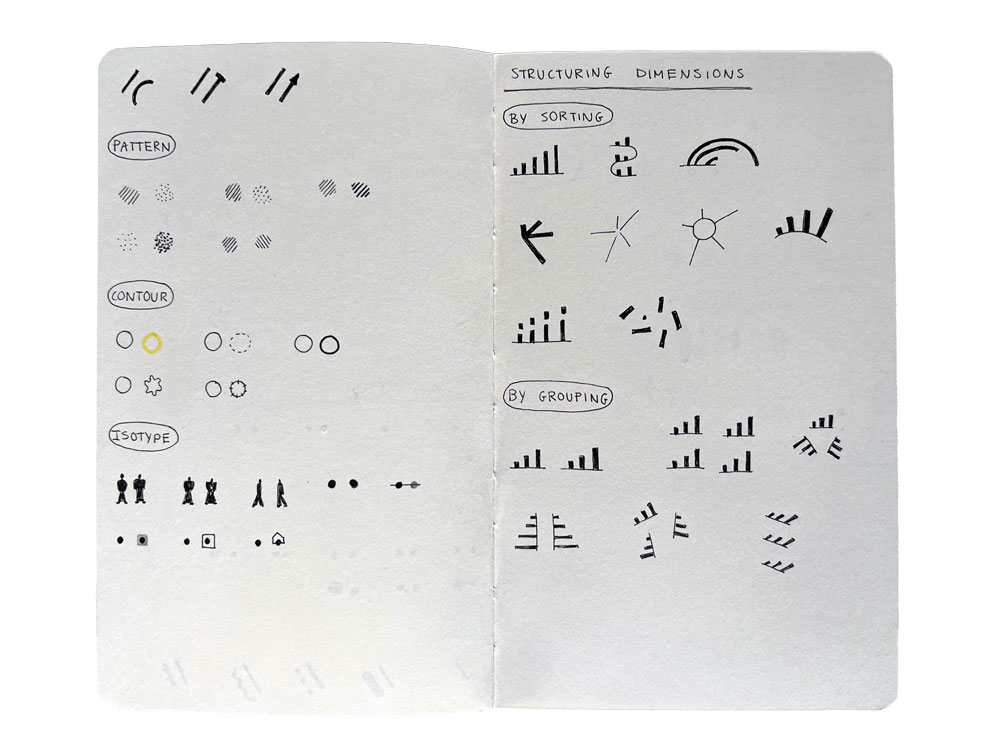 PATTERN
CONTOUR
ISOTYPE
STRUCTURING DIMENSIONS
BY SORTING
BY GROUPING